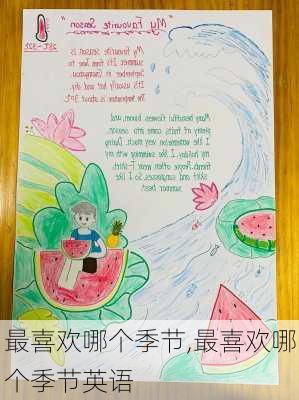 "My Favourite Season"
My favourite season is
summer. It's from June to
September in Guangzhou.
It's usually hot and dry.
The temperature is about 30℃.
Many beautiful flowers bloom, and
plenty of fruits come into season.
I like watermelon very much. During
my holiday, I like swimming with my
family. People often wear T-shirt,
skirt and sunglasses. So I like
summer best!
最喜欢哪个季节,最喜欢哪
个季节英语